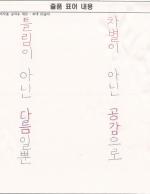 출품 표어 내용
차별이 아닌 공감으로
틀림이 아닌 다름일뿐